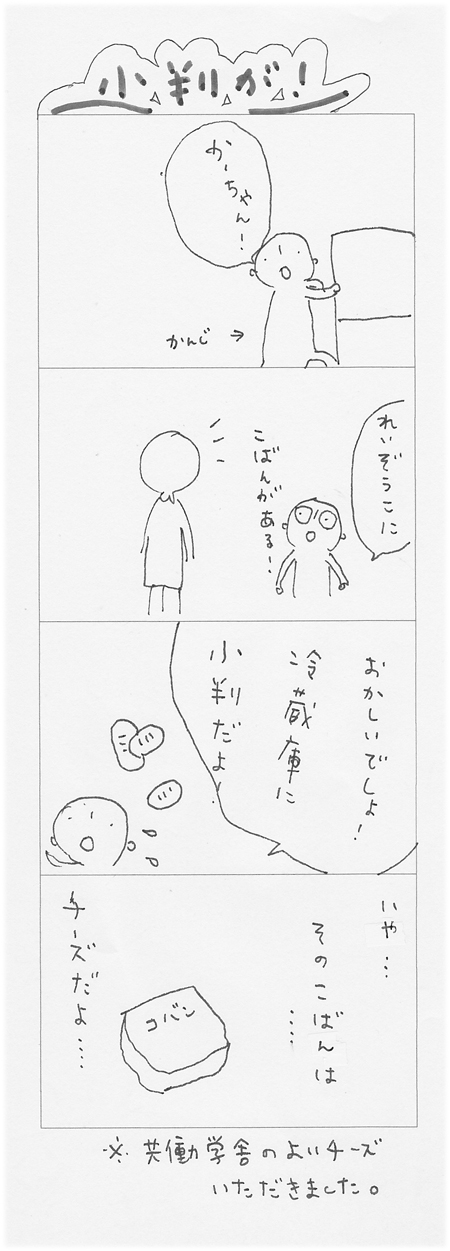 小判が！
かーちゃん！
かんじ→
れいぞうこに
こばんがある！
おかしいでしょ！
冷蔵庫に
小判だよ！
いや…
そのこばんは
……
コバン
チーズだよ……
※共働学舎のよいチーズ
いただきました。